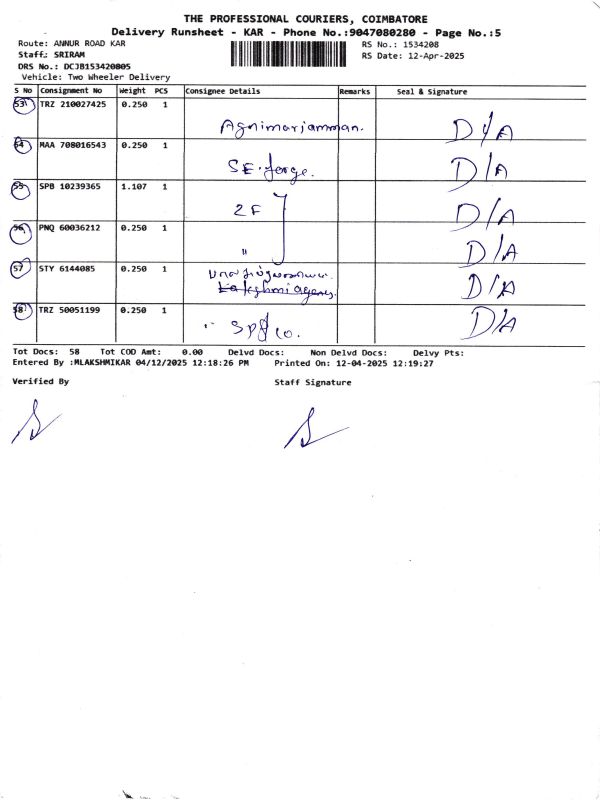 THE PROFESSIONAL COURIERS, COIMBATORE
Delivery Runsheet - KAR - Phone No.:9047080280 - Page No.:5
Route: ANNUR ROAD KAR
RS No.: 1534208
Staff.: SRIRAM
RS Date: 12-Apr-2025
DRS No.: DCJB153420805
Vehicle: Two Wheeler Delivery
S No Consignment No Weight PCS Consignee Details Remarks Seal & Signature
53 TRZ 210027425 0.250 1
Agnimariamman. D/A
54 MAA 708016543 0.250 1
SE. forge. D/A
55 SPB 10239365 1.107 1
ZF D/A
56 PNQ 60036212 0.250 1
" D/A
57 STY 6144085 0.250 1
Lakshmi agency. D/A
58 TRZ 50051199 0.250 1
D/A
Tot Docs: 58 Tot COD Amt: 0.00 Delvd Docs: Non Delvd Docs: Delvy Pts:
Entered By :MLAKSHMIKAR 04/12/2025 12:18:26 PM Printed On: 12-04-2025 12:19:27
Verified By Staff Signature